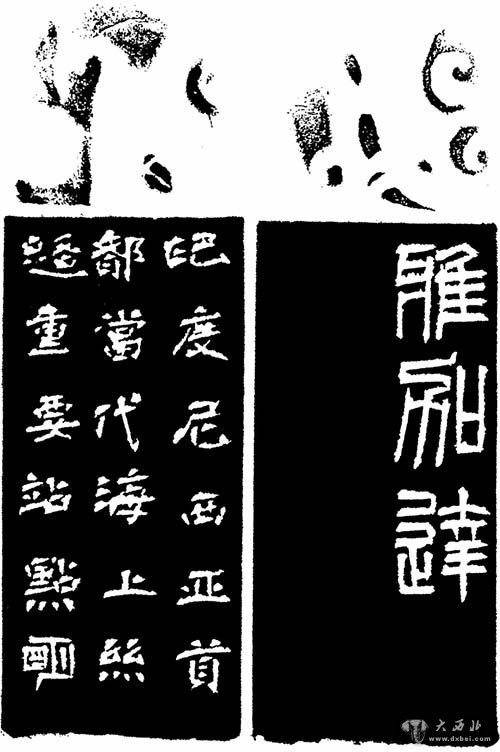 雅加達
印度尼西亚首
都當代海上絲
重要站點明
大西北
www.dxbei.com